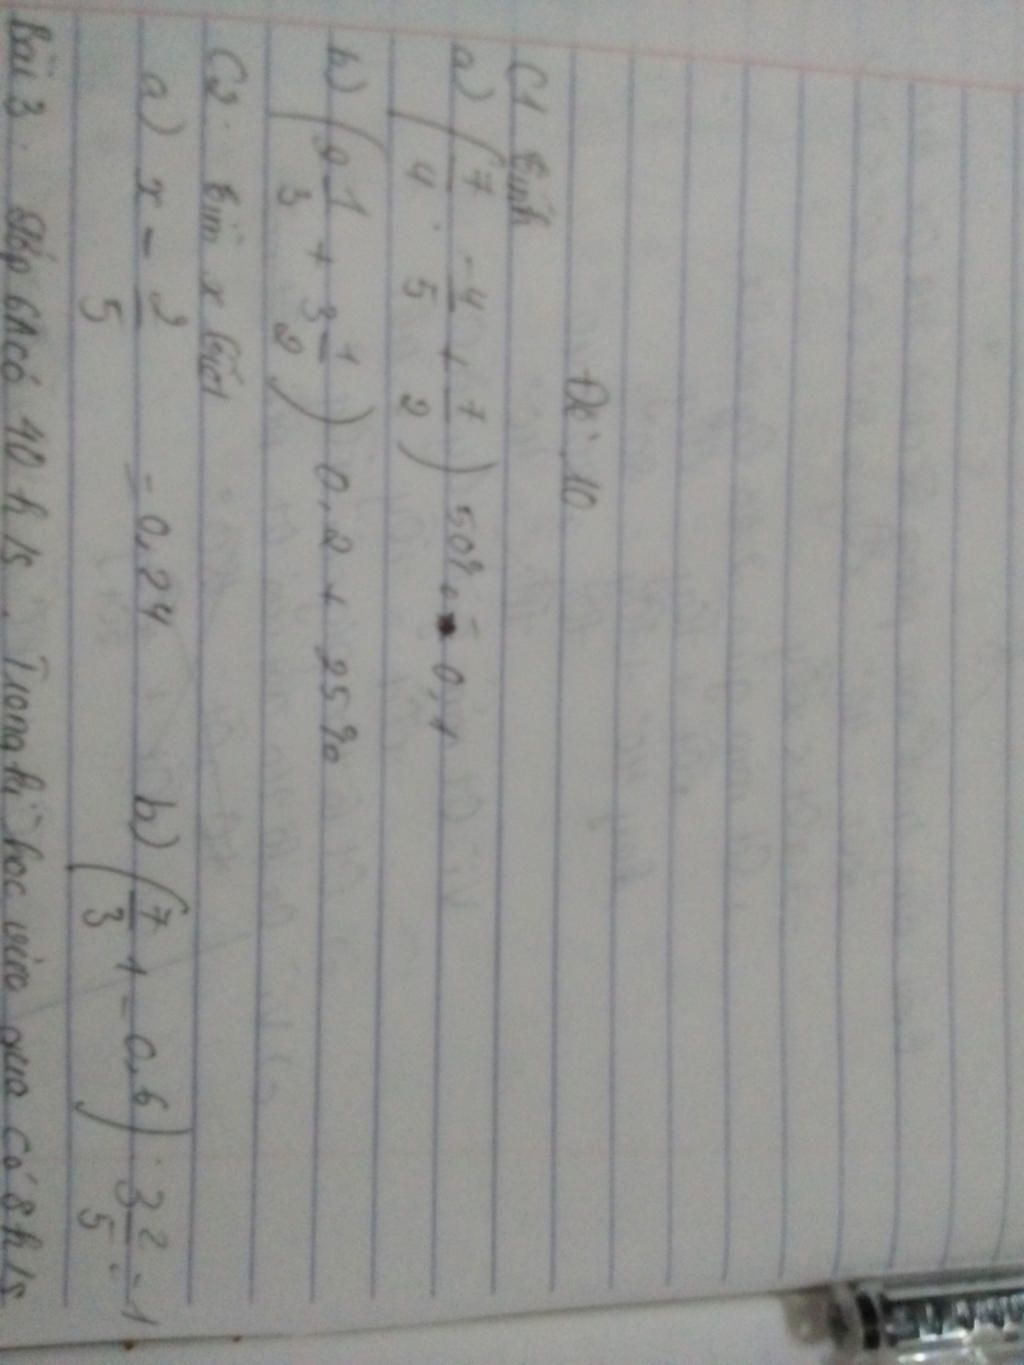 Đề 10
C1 tính
a) (7/4 . -4/5 + 7/2) 50% - 0,1
b) (2 1/3 + 3 1/2) 0,2 + 25%
C2. tìm x biết
a) x - 2/5 - 0,24 b) (7/3 + - 0,6) : 3 2/5 = -1
Bài 3. lớp 6A có 40 h/s. Trong kì học vừa qua có 8 h/s